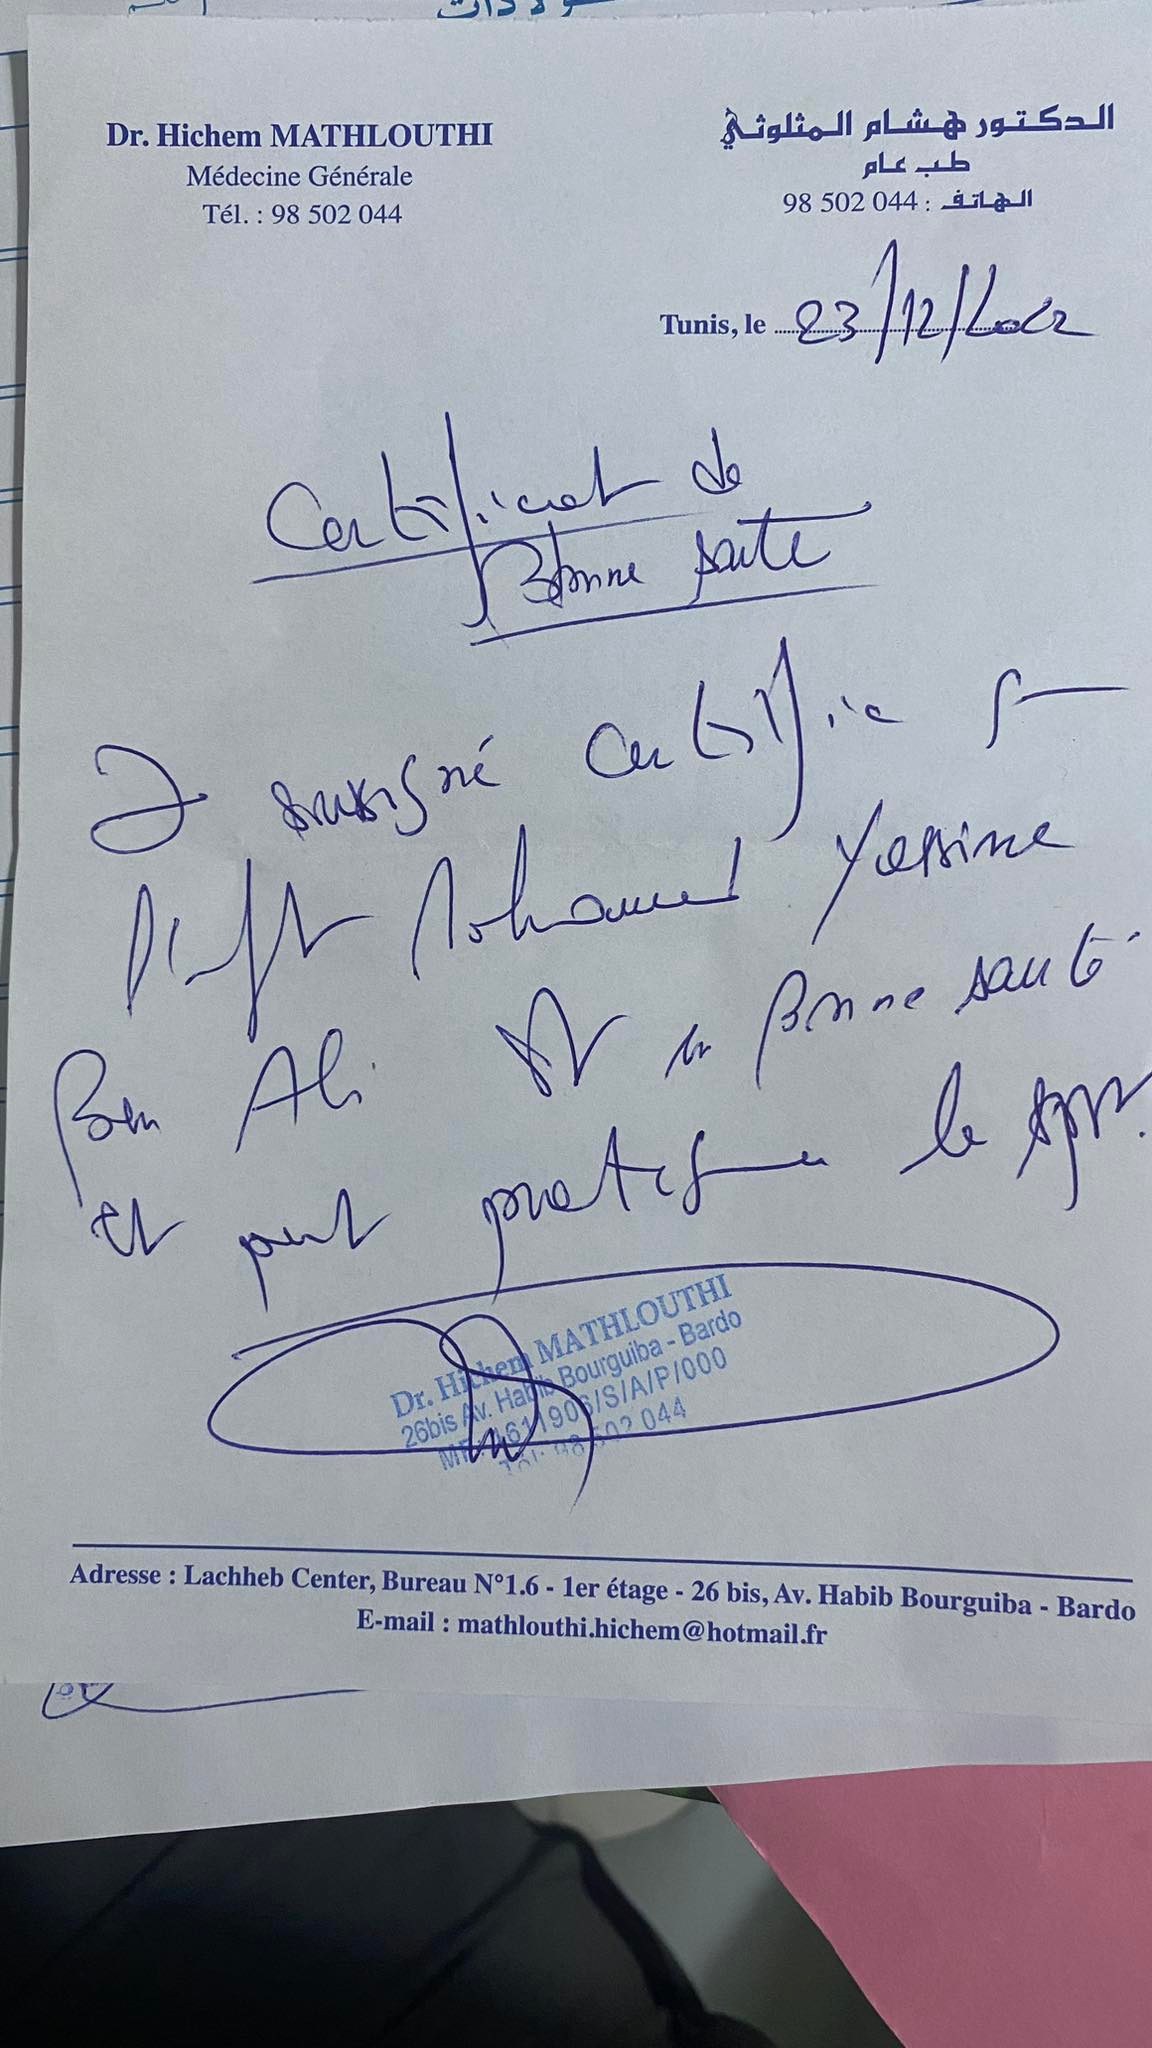 Dr. Hichem MATHLOUTHI
Médecine Générale
Tél. : 98 502 044
الدكتور هشام المثلوثي
طب عام
الهاتف : 98 502 044
Tunis, le 23/12/2022
Certificat de
Bonne santé
Je soussigné certifie que
l'enfant Mohamed Yassine
Ben Ali est en Bonne santé
et peut pratiquer le sport.
Dr. Hichem MATHLOUTHI
26bis Av. Habib Bourguiba - Bardo
/S/A/P/000
Tél: 98 502 044
Adresse : Lachheb Center, Bureau N°1.6 - 1er étage - 26 bis, Av. Habib Bourguiba - Bardo
E-mail : mathlouthi.hichem@hotmail.fr